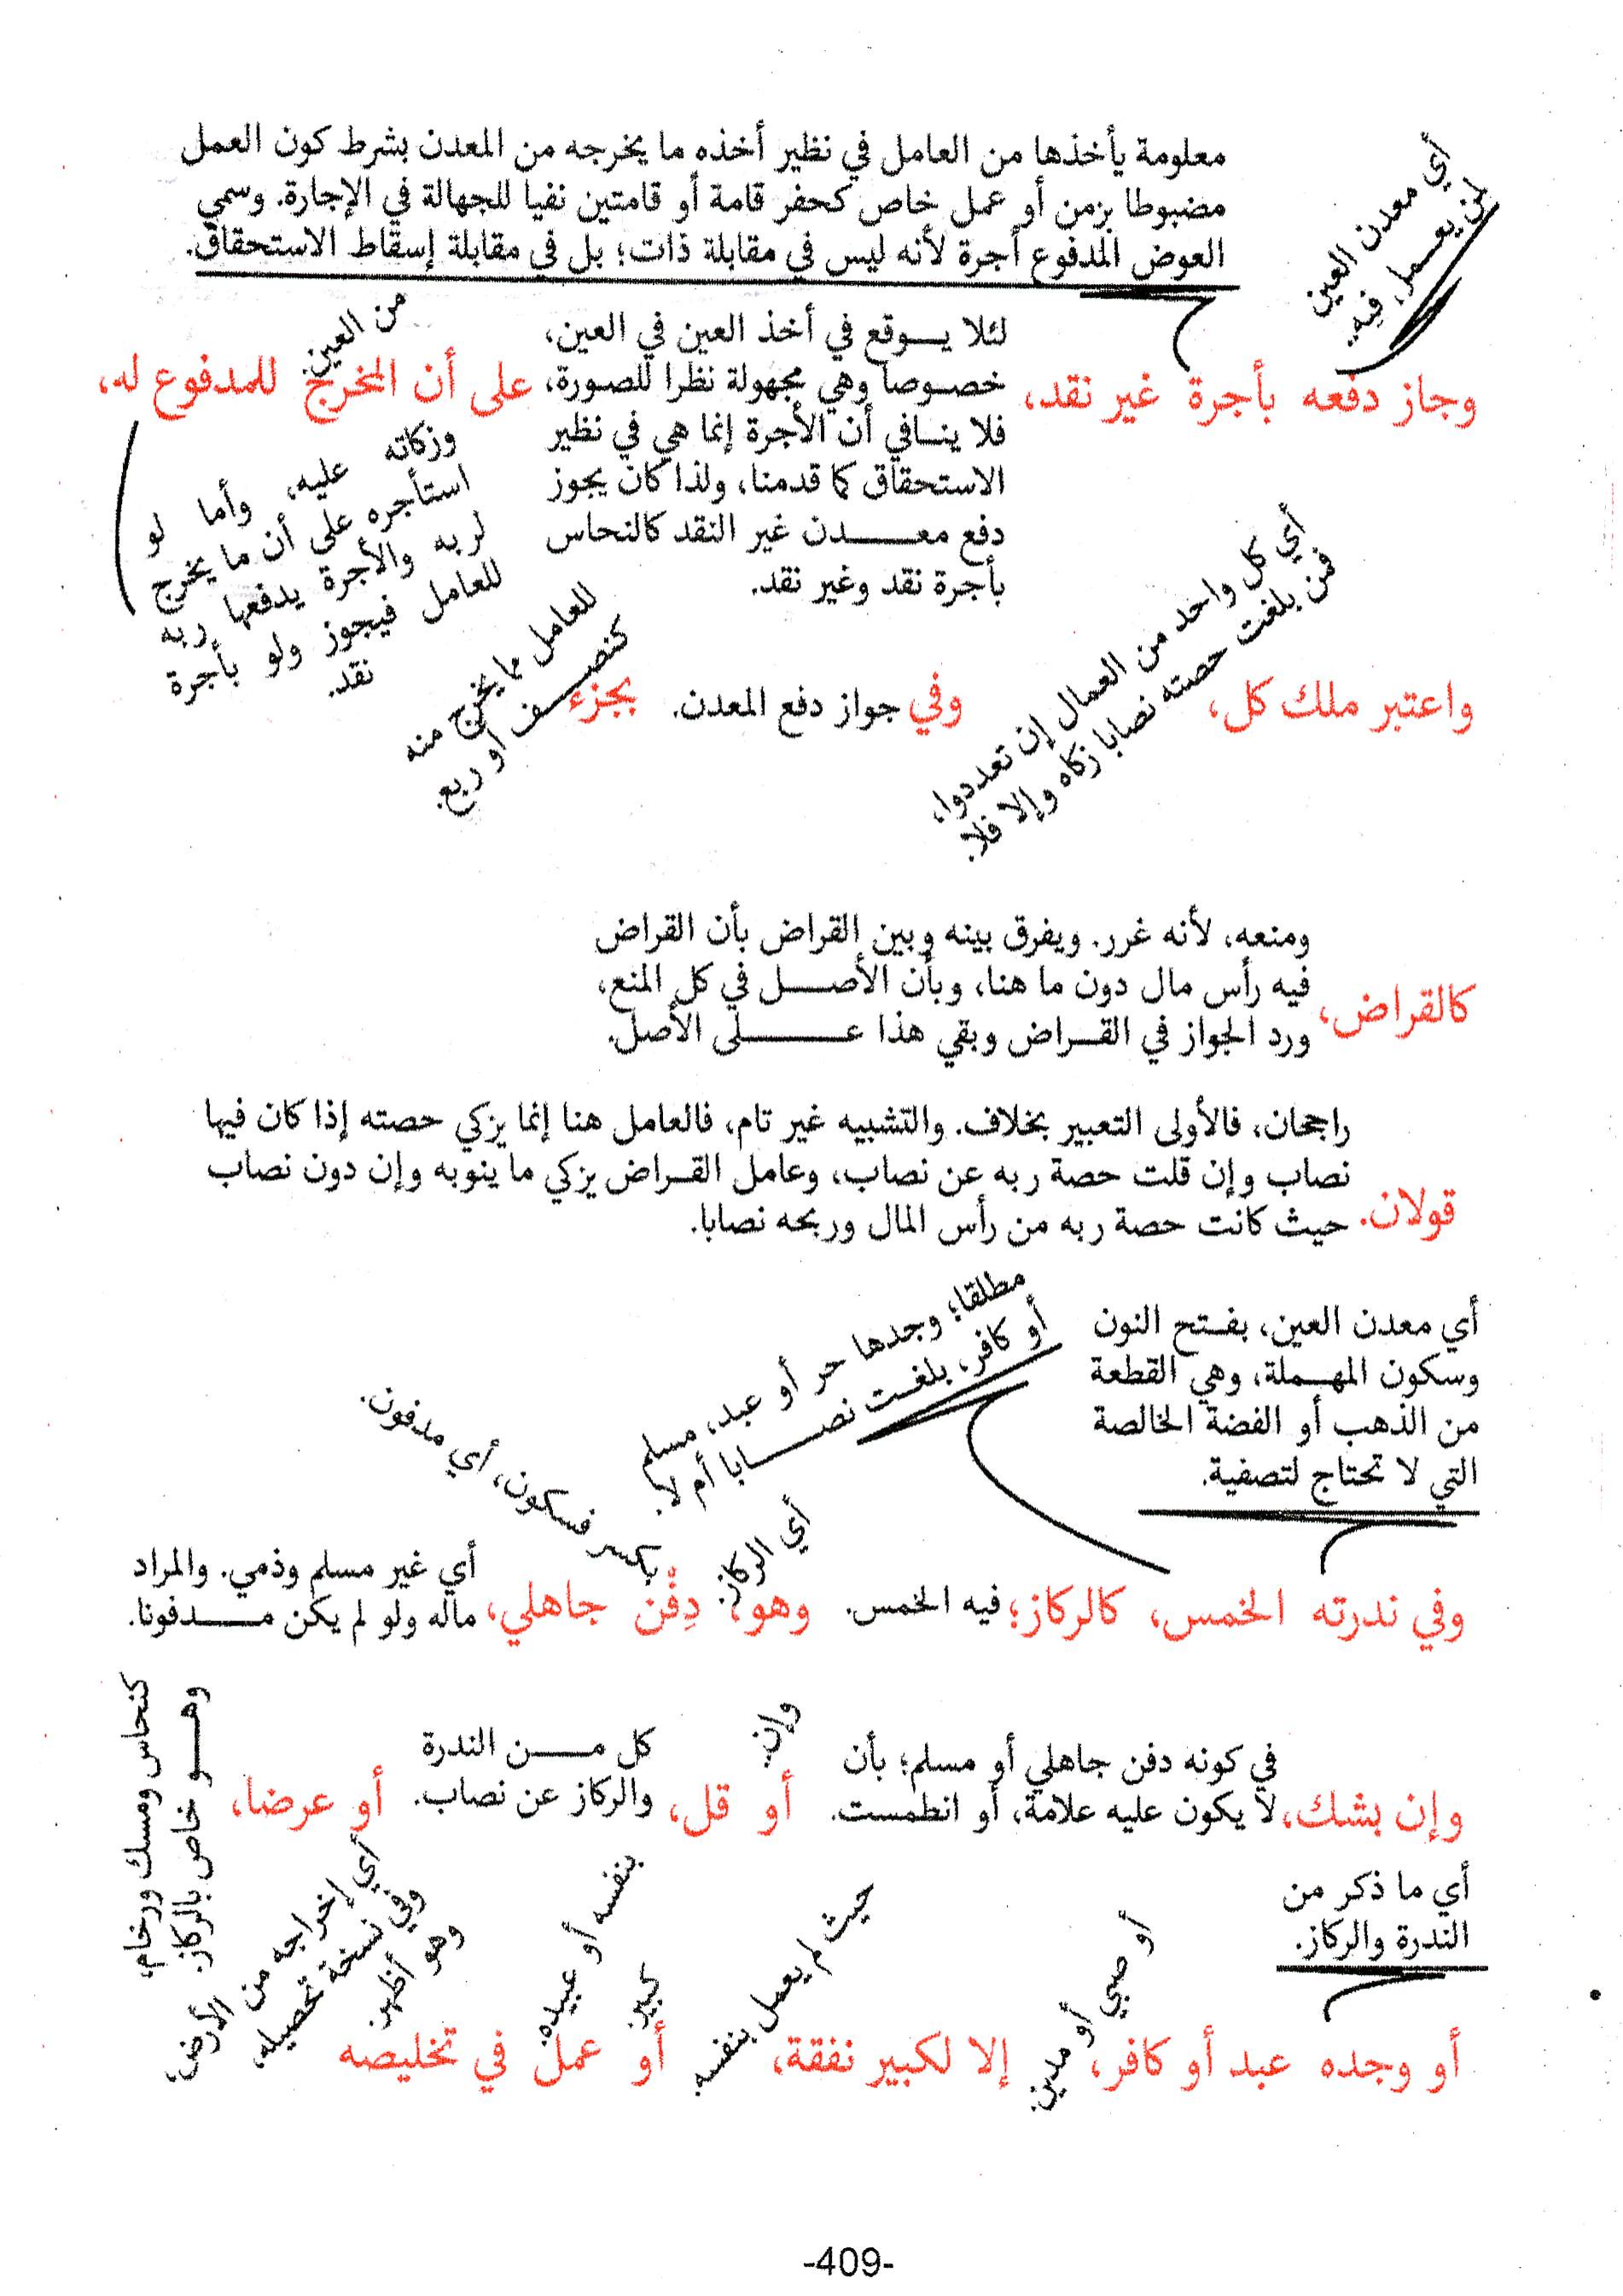 معلومة يأخذها من العامل في نظير أخذه ما يخرجه من المعدن بشرط كون العمل
مضبوطا بزمن أو عمل خاص كحفر قامة أو قامتين نفيا للجهالة في الإجارة. وسمي
العوض المدفوع أجرة لأنه ليس في مقابلة ذات؛ بل في مقابلة إسقاط الاستحقاق.
أي معدن العين
لمن يعمل فيه.
وجاز دفعه بأجرة غير نقد،
لئلا يوقع في أخذ العين في العين،
خصوصا وهي مجهولة نظرا للصورة،
فلا ينافي أن الأجرة إنما هي في نظير
الاستحقاق كما قدمنا، ولذا كان يجوز
دفع معدن غير النقد كالنحاس
بأجرة نقد وغير نقد.
على أن المخرج للمدفوع له،
من العين.
وزكاته عليه، وأما لو
استأجره على أن ما يخرج
لربه والأجرة يدفعها ربه
للعامل فيجوز ولو بأجرة
نقد.
واعتبر ملك كل،
أي كل واحد من العمال إن تعددوا،
فمن بلغت حصته نصابا زكاه وإلا فلا.
وفي جواز دفع المعدن. بجزء
للعامل مما يخرج منه
كنصف أو ربع.
كالقراض،
ومنعه، لأنه غرر. ويفرق بينه وبين القراض بأن القراض
فيه رأس مال دون ما هنا، وبأن الأصل في كل المنع،
ورد الجواز في القراض وبقي هذا على الأصل.
قولان.
راجحان، فالأولى التعبير بخلاف. والتشبيه غير تام، فالعامل هنا إنما يزكي حصته إذا كان فيها
نصاب وإن قلت حصة ربه عن نصاب، وعامل القراض يزكي ما ينوبه وإن دون نصاب
حيث كانت حصة ربه من رأس المال وربحه نصابا.
أي معدن العين، بفتح النون
وسكون المهملة، وهي القطعة
من الذهب أو الفضة الخالصة
التي لا تحتاج لتصفية.
مطلقا؛ وجدها حر أو عبد، مسلم
أو كافر، بلغت نصابا أم لا.
وفي ندرته الخمس، كالركاز؛ فيه الخمس. وهو، دِفْن جاهلي،
أي الركاز.
بكسر فسكون، أي مدفون.
أي غير مسلم وذمي. والمراد
ماله ولو لم يكن مدفونا.
وإن بشك،
في كونه دفن جاهلي أو مسلم؛ بأن
لا يكون عليه علامة، أو انطمست.
أو قل،
وإن.
كل من الندرة
والركاز عن نصاب.
أو عرضا،
كنحاس ومسك ورخام،
وهو خاص بالركاز.
أي ما ذكر من
الندرة والركاز.
أو وجده عبد أو كافر، إلا لكبير نفقة، أو عمل في تخليصه
أو صبي أو مدين.
حيث لم يعمل بنفسه.
كبير.
بنفسه أو عبيده.
أي إخراجه من الأرض،
وفي نسخة تحصيله،
وهو أظهر.
-409-